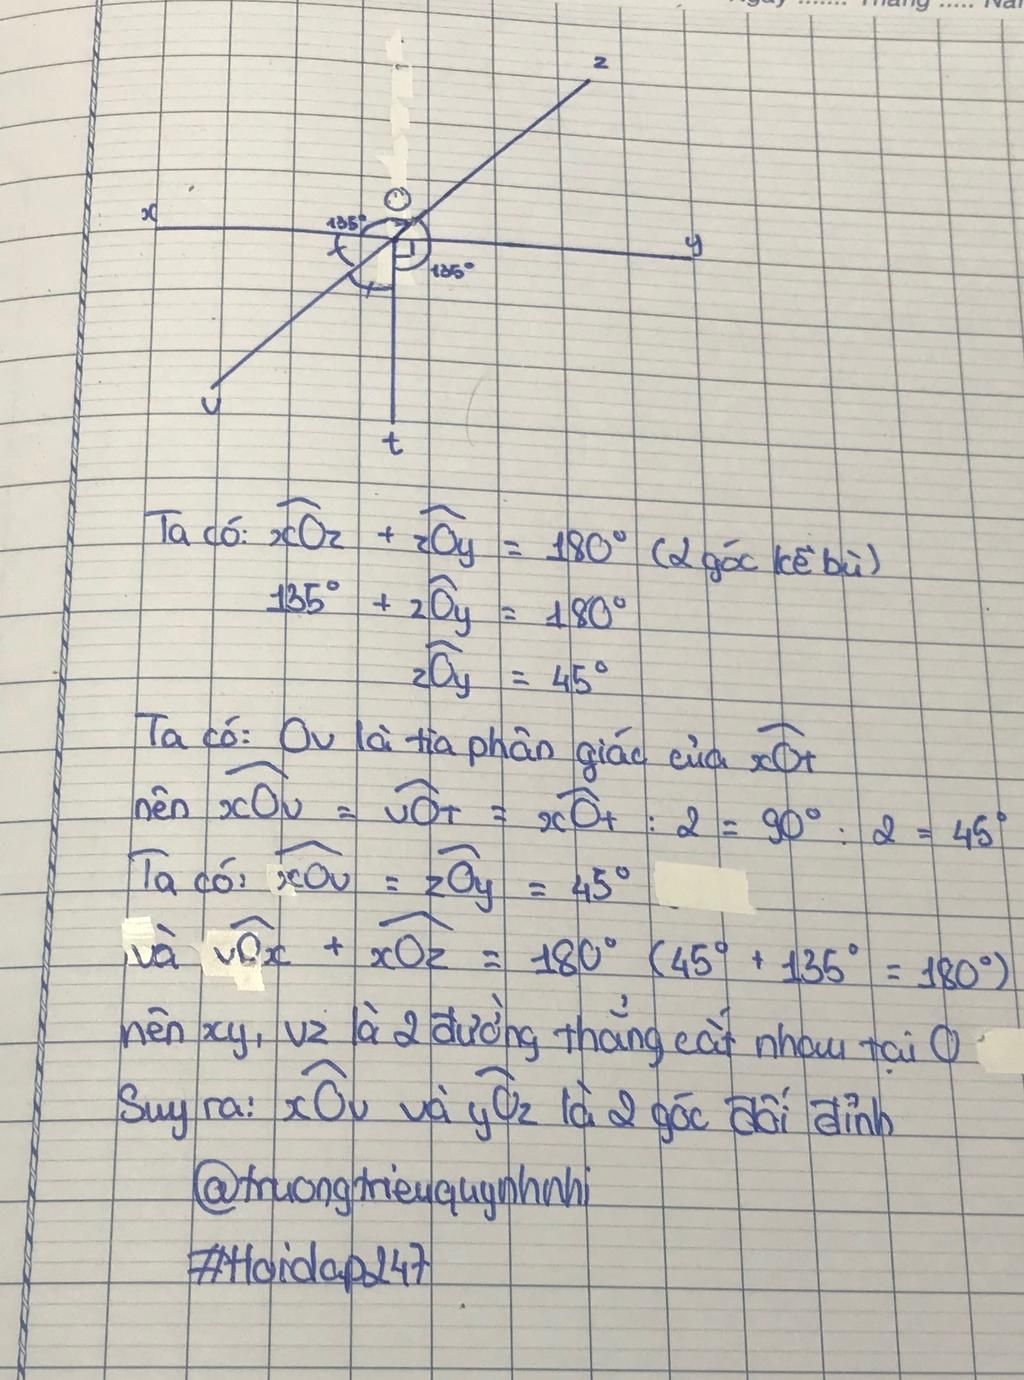 Ngày ....... Tháng ..... Nă
z
O
x
135°
y
135°
v
t
Ta có: xOz + zOy = 180° (2 góc kề bù)
135° + zOy = 180°
zOy = 45°
Ta có: Ov là tia phân giác của xOt
nên xOv = vOt = xOt : 2 = 90° : 2 = 45°
Ta có: xOv = zOy = 45°
và vOx + xOz = 180° (45° + 135° = 180°)
nên xy, vz là 2 đường thẳng cắt nhau tại O
Suy ra: xOv và yOz là 2 góc đối đỉnh
@truongtrieuquynhnhi
#Hoidap247